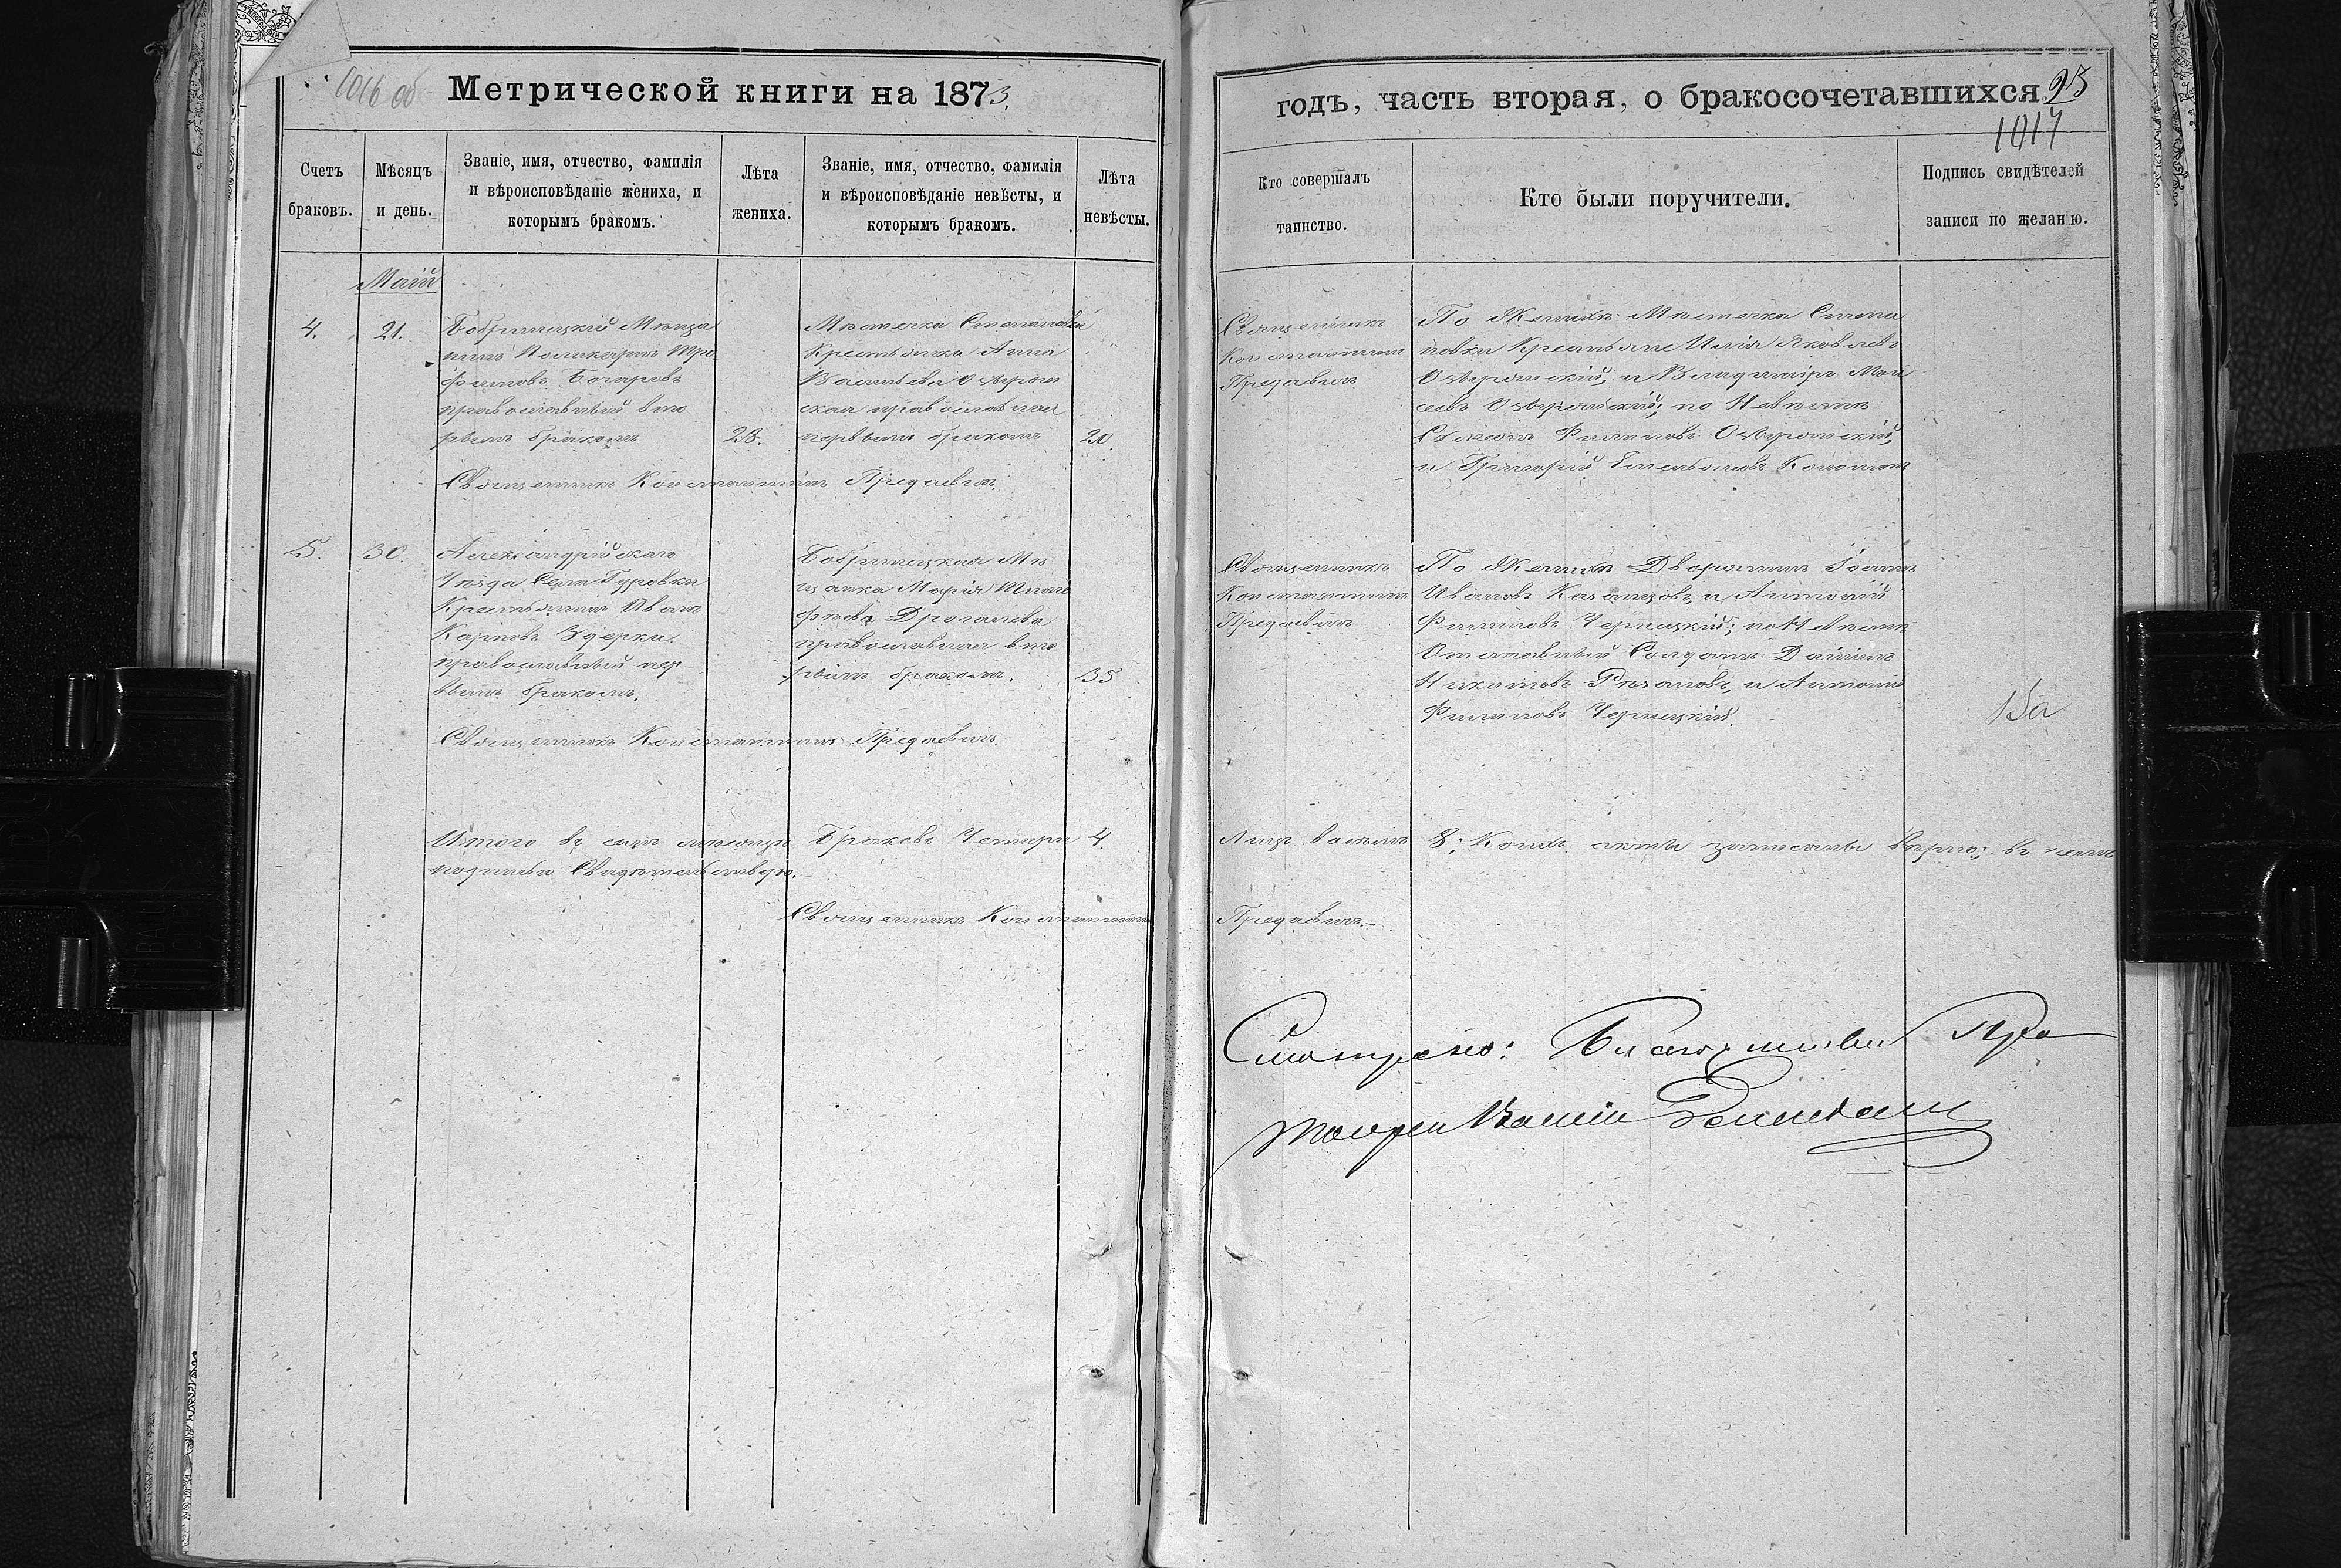 1016 об
Метрической книги на 1873.
Счетъ браковъ.
Мѣсяцъ и день.
Званіе, имя, отчество, фамилія
и вѣроисповѣданіе жениха, и
которымъ бракомъ.
Лѣта
жениха.
Званіе, имя, отчество, фамилія
и вѣроисповѣданіе невѣсты, и
которымъ бракомъ.
Лѣта
невѣсты.
Май
4.
21.
Бобринецкій Мѣща
нинъ Поликарпъ Тро
фимовъ Бочаровъ
православный вто
рымъ бракомъ
28.
Мѣстечка Степановки
Крестьянка Анна
Васильева Озерян
ская православная
первымъ бракомъ
20
Священникъ Константинъ Предаевичъ.
5.
30.
Александрійскаго
Уѣзда Села Гуровки
Крестьянинъ Иванъ
Карповъ Удерка.
православный пер-
вымъ бракомъ.
Бобринецкая Мѣ
щанка Марія Тимо
фѣева Дрогалева
православная вто
рымъ бракомъ.
35
Священникъ Константинъ Предаевичъ.
Итого въ семъ мѣсяцѣ Браковъ Четыри 4.
подписью Свидѣтельствую.
Священникъ Константинъ
годъ, часть вторая, о бракосочетавшихся
23
1017
Кто совершалъ
таинство.
Кто были поручители.
Подпись свидѣтелей
записи по желанію.
Священникъ
Константинъ
Предаевичъ
По Женихѣ: Мѣстечка Степа
новки Крестьяне Илія Яковлевъ
Озерянскій, и Владиміръ Мои
сеевъ Озерянскій; по Невѣстѣ
Симеонъ Филиповъ Озерянскій,
и Григорій Емельяновъ
Священникъ
Константинъ
Предаевичъ
По Женихѣ Дворянинъ Іоаннъ
Ивановъ Казанцовъ, и Антоній
Филиповъ Чернецкій; по Невѣстѣ
Отставный Солдатъ Даніилъ
Никитовъ Рѣзановъ, и Антоній
Филиповъ Чернецкій.
Лицъ 8; Коихъ акты записаны вѣрно; въ чемъ
Предаевичъ.
Смотрено: Благочинный Про
тоіерей